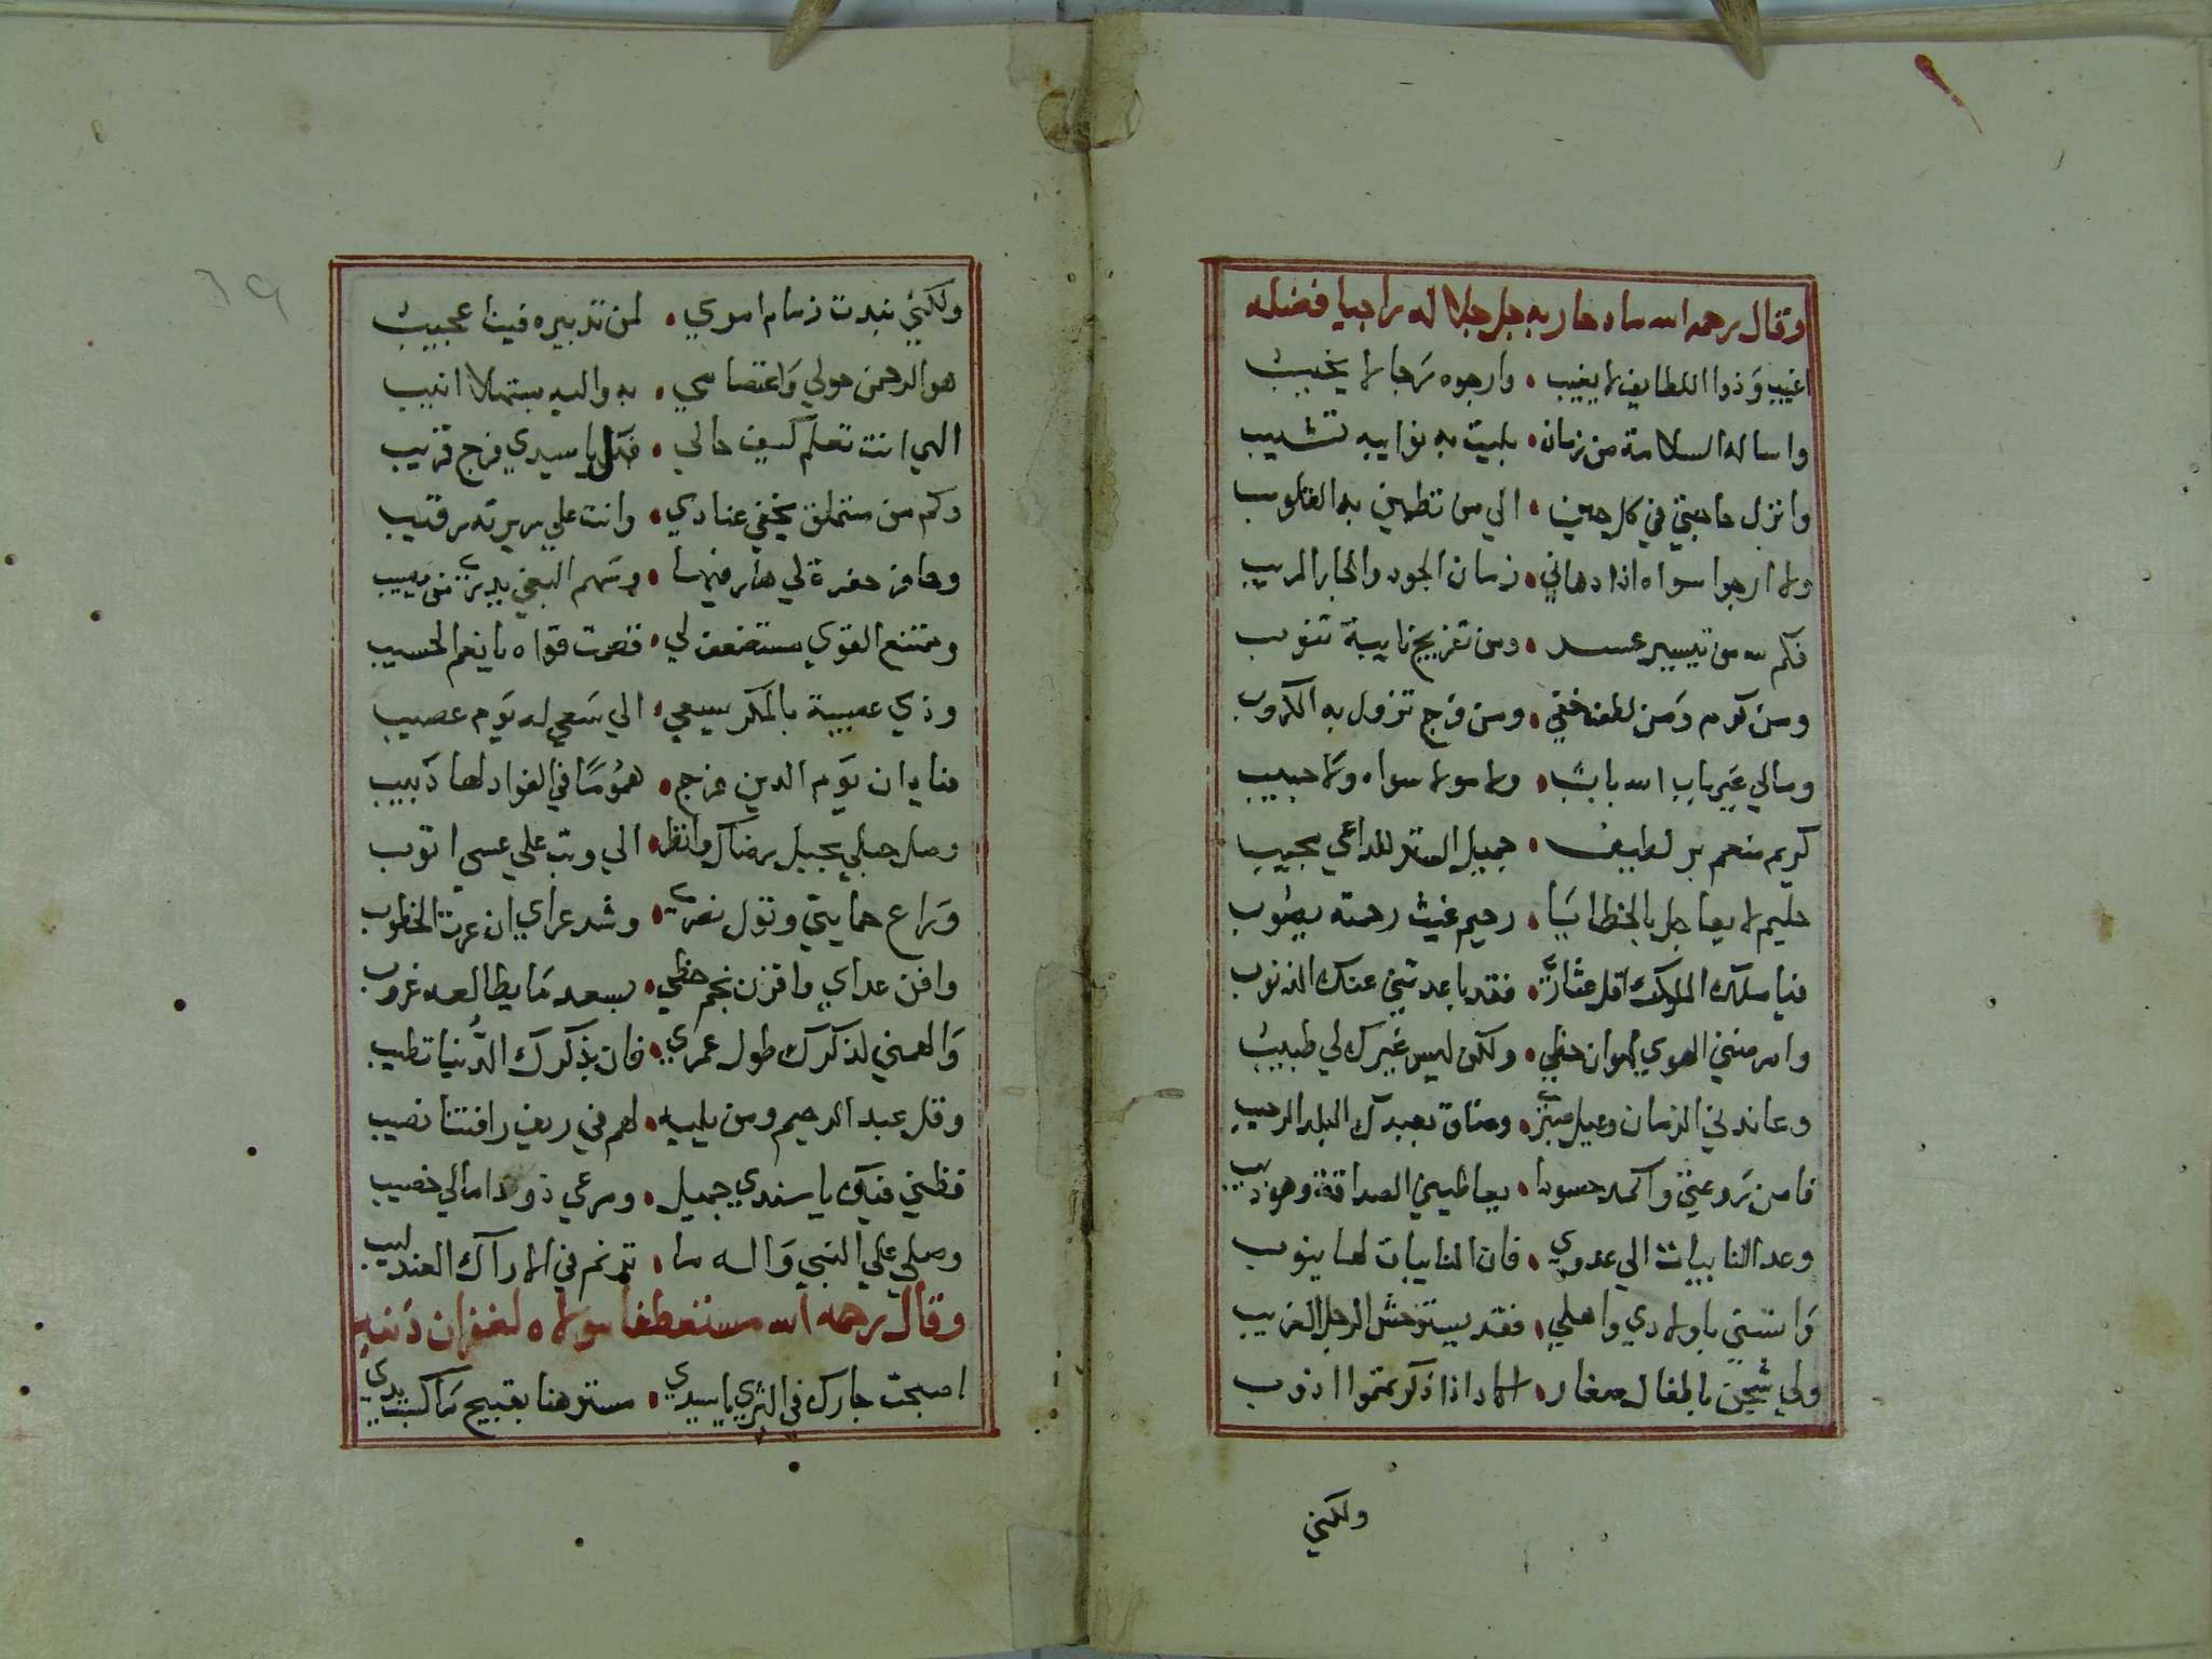 وقال رحمه الله مادحا ربه جل جلاله راجيا فضله
اغيب وذوا اللطايف لا يغيب • وارجوه رجا لا يخيب
واساله السلامة من زمان • بليت به نوايبه تشيب
وانزل حاجتي في كل حين • الي من تطمين به القلوب
ولا ارجوا سواه اذا دهاني • زمان الجور والجار المريب
فكم لله من تيسير عسر • ومن تفريج نايبة تنوب
ومن كرم ومن لطف خفي • ومن فرج تزول به الكروب
ومالي غير باب الله باب • ولا مولا سواه ولا حبيب
كريم منعم بر لطيف • جميل الستر للداعي مجيب
حليم لا يعاجل بالخطايا • رحيم غيث رحمته يصوب
فيا ملك الملوك اقل عثاري • فقد باعدتني عنك الذنوب
وامرضني الهوي لهوان حظي • ولكن ليس غيرك لي طبيب
وعاندني الزمان وعيل صبري • وضاق بعبدك البلد الرحيب
فامن روعتي واكمد حسودا • يعاطيني الصداقة وهو ذيب
وعد النايبات الي عدوي • فان النايبات لها ينوب
وانستي باولادي واهلي • فقد يستوحش الرجل الغريب
ولي شجن باطفال صغار • اكاد اذا ذكرتموا اذوب
ولكني
ولكني نبذت زمام امري • لمن تدبيره فينا عجيب
هو الرحمن حولي واعتصامي • به واليه مبتهلا انيب
الهي انت تعلم كيف حالي • فهل يا سيدي فرج قريب
وكم من متملق يخفي عنادي • وانت علي سريرته رقيب
وحافر حفرة لي هار فيها • وسهم البغي يدري من يصيب
وممتنع القوي مستضعف لي • قصمت قواه يا نعم الحسيب
وذي عصبية بالمكر يسعي • الي سعي له يوم عصيب
فيا ديان يوم الدين فرج • هموما في الفواد لها دبيب
وصل حبلي بحبل رضاك وانظر • الي وتب علي عسي اتوب
وراع حمايتي وتول نصري • وشد عراي ان عرت الخطوب
وافن عداي واقرن نجم حظي • بسعد ما يطالعه غروب
والهمني لذكرك طول عمري • فان بذكرك الدنيا تطيب
وقل عبد الرحيم ومن يليه • لهم في ريف رافتنا نصيب
فظني فيك يا سندي جميل • ومرعي ذود امالي خصيب
وصلي علي النبي واله ما • ترنم في الاراك العندليب
وقال رحمه الله مستعطفا مولاه لغفران ذنبه
اصبحت جارك في الثري يا سيدي • مسترهنا بقبيح ما كسبت يدي
39